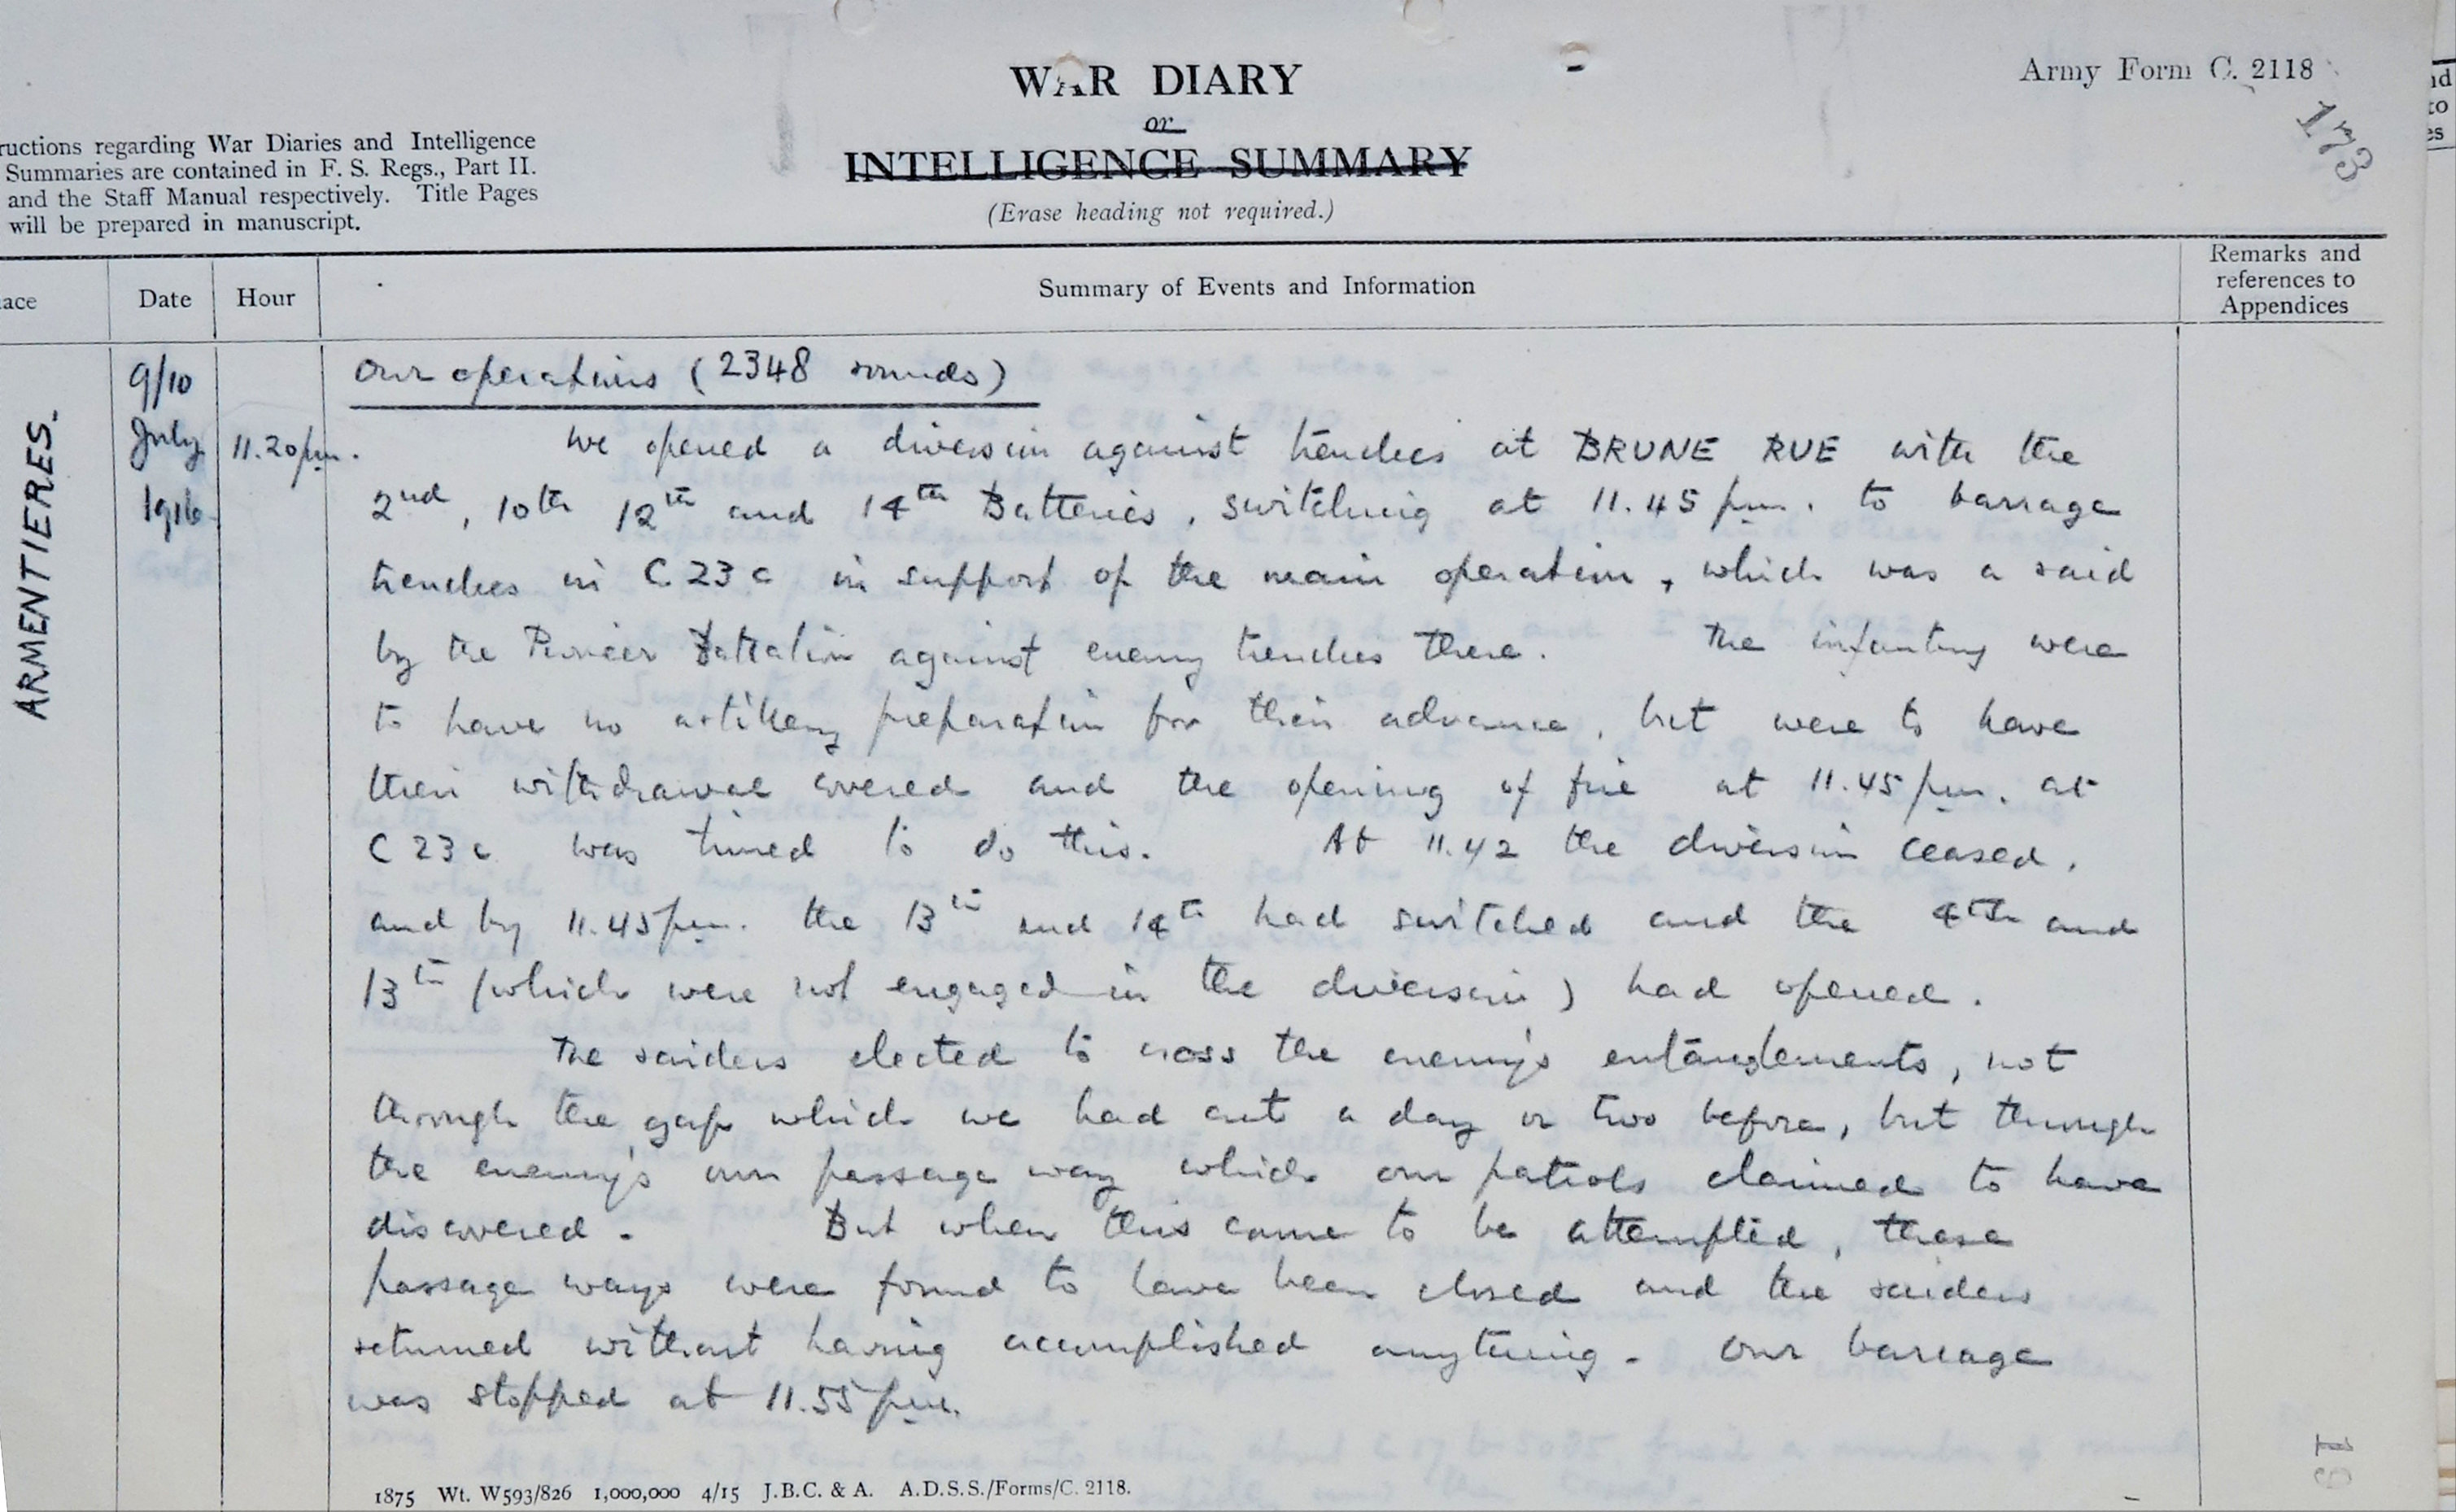 WAR DIARY
or
INTELLIGENCE SUMMARY
(Erase heading not required.)
Army Form C. 2118
173
ructions regarding War Diaries and Intelligence
Summaries are contained in F. S. Regs., Part II.
and the Staff Manual respectively. Title Pages
will be prepared in manuscript.
ace
Date
Hour
Summary of Events and Information
Remarks and
references to
Appendices
ARMENTIERES.
9/10
July
1916
11.20 pm.
Our operations (2348 rounds)
We opened a diversion against trenches at BRUNE RUE with the
2nd, 10th 12th and 14th Batteries, switching at 11.45 pm. to barrage
trenches in C.23 c in support of the main operation, which was a raid
by the Pioneer Battalion against enemy trenches there. The infantry were
to have no artillery preparation for their advance, but were to have
their withdrawal covered and the opening of fire at 11.45 pm. at
C 23 c was timed to do this. At 11.42 the diversion ceased,
and by 11.45 pm. the 13th and 14th had switched and the 4th and
13th (which were not engaged in the diversion) had opened.
The raiders elected to cross the enemy's entanglements, not
through the gap which we had cut a day or two before, but through
the enemy's own passage way which our patrols claimed to have
discovered. But when this came to be attempted, these
passage ways were found to have been closed and the raiders
returned without having accomplished anything. Our barrage
was stopped at 11.55 pm.
1875 Wt. W593/826 1,000,000 4/15 J.B.C. & A. A.D.S.S./Forms/C. 2118.